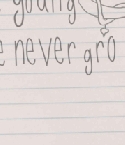 young
never gro